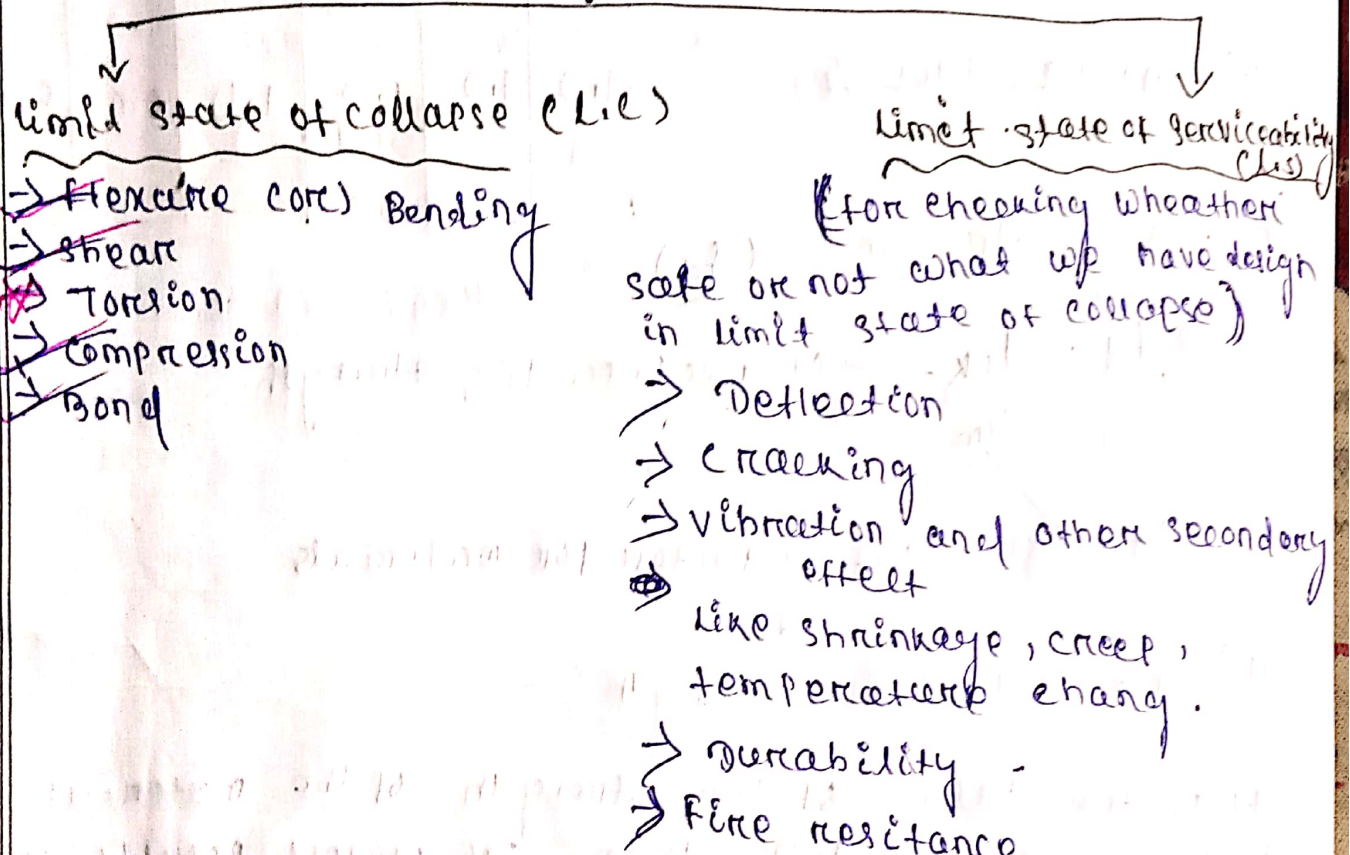 Limit state of collapse (L.C)
→ Flexure (or) Bending
→ Shear
→ Torsion
→ Compression
→ Bond
Limit state of Serviceability
(L.S)
(for checking wheather
safe or not what we have design
in limit state of collapse)
→ Deflection
→ Cracking
→ Vibration and other secondary
effect
Like shrinkage, creep,
temperature chang.
→ Durability
→ Fire resitance